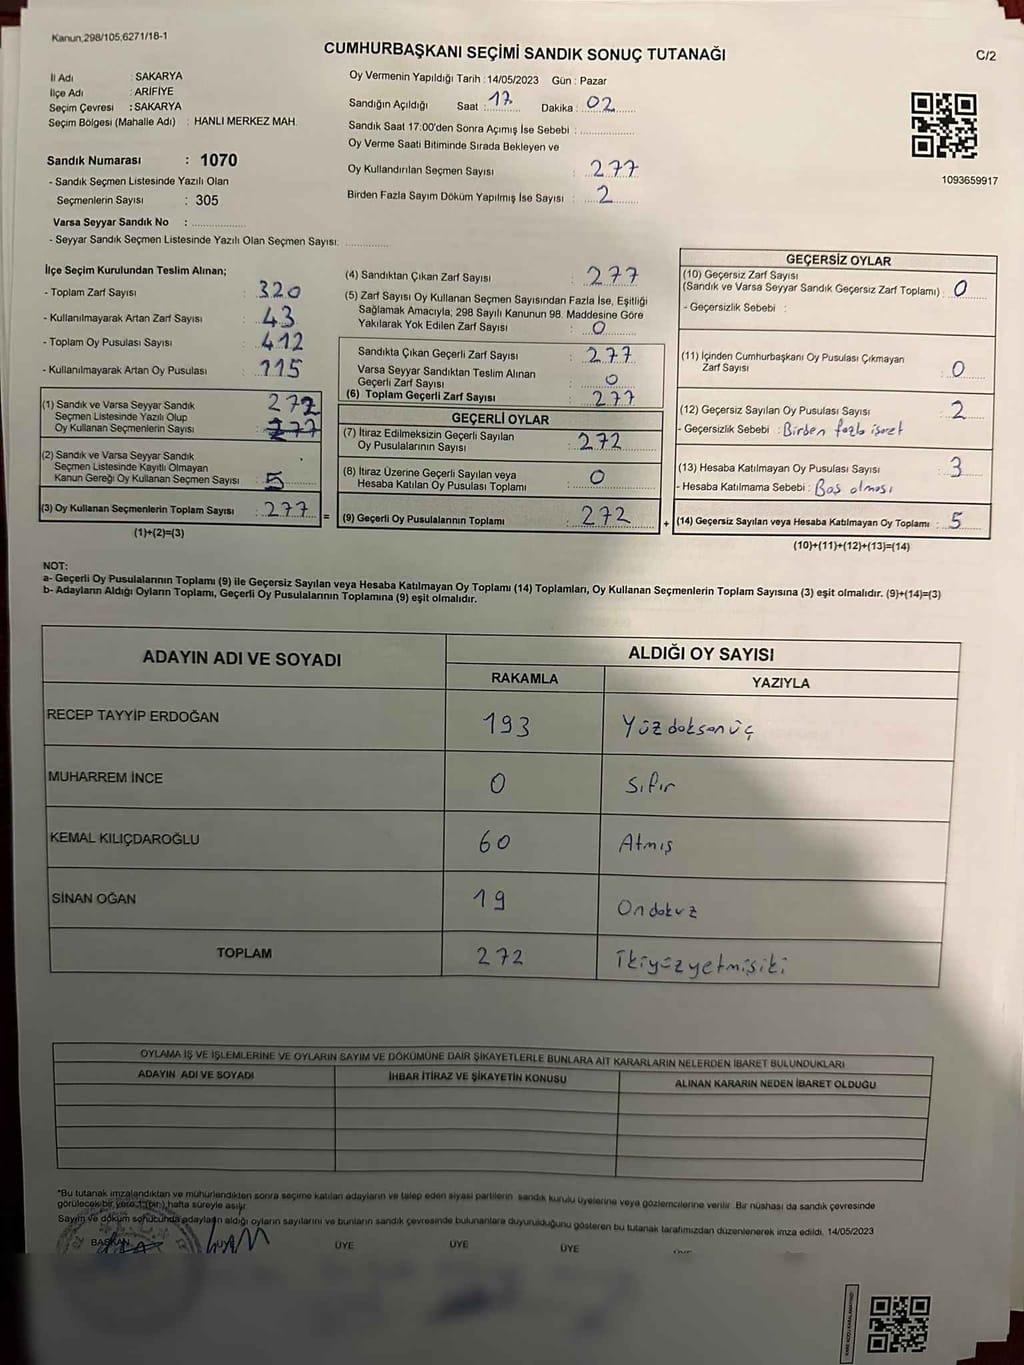 Kanun,298/105,6271/18-1
CUMHURBAŞKANI SEÇİMİ SANDIK SONUÇ TUTANAĞI
C/2
İl Adı : SAKARYA
İlçe Adı : ARİFİYE
Seçim Çevresi : SAKARYA
Seçim Bölgesi (Mahalle Adı) : HANLI MERKEZ MAH.
Sandık Numarası : 1070
- Sandık Seçmen Listesinde Yazılı Olan
Seçmenlerin Sayısı : 305
Varsa Seyyar Sandık No :
- Seyyar Sandık Seçmen Listesinde Yazılı Olan Seçmen Sayısı:
Oy Vermenin Yapıldığı Tarih : 14/05/2023 Gün : Pazar
Sandığın Açıldığı Saat : 17 Dakika : 02
Sandık Saat 17:00'den Sonra Açımış İse Sebebi :
Oy Verme Saati Bitiminde Sırada Bekleyen ve
Oy Kullandırılan Seçmen Sayısı : 277
Birden Fazla Sayım Döküm Yapılmış İse Sayısı : 2
1093659917
İlçe Seçim Kurulundan Teslim Alınan;
- Toplam Zarf Sayısı : 320
- Kullanılmayarak Artan Zarf Sayısı : 43
- Toplam Oy Pusulası Sayısı : 412
- Kullanılmayarak Artan Oy Pusulası : 115
(1) Sandık ve Varsa Seyyar Sandık 272
Seçmen Listesinde Yazılı Olup
Oy Kullanan Seçmenlerin Sayısı : 277
(2) Sandık ve Varsa Seyyar Sandık
Seçmen Listesinde Kayıtlı Olmayan
Kanun Gereği Oy Kullanan Seçmen Sayısı : 5
(3) Oy Kullanan Seçmenlerin Toplam Sayısı : 277 =
(1)+(2)=(3)
(4) Sandıktan Çıkan Zarf Sayısı : 277
(5) Zarf Sayısı Oy Kullanan Seçmen Sayısından Fazla İse, Eşitliği
Sağlamak Amacıyla; 298 Sayılı Kanunun 98. Maddesine Göre
Yakılarak Yok Edilen Zarf Sayısı : 0
Sandıkta Çıkan Geçerli Zarf Sayısı : 277
Varsa Seyyar Sandıktan Teslim Alınan
Geçerli Zarf Sayısı : 0
(6) Toplam Geçerli Zarf Sayısı : 277
GEÇERLİ OYLAR
(7) İtiraz Edilmeksizin Geçerli Sayılan
Oy Pusulalarının Sayısı : 272
(8) İtiraz Üzerine Geçerli Sayılan veya
Hesaba Katılan Oy Pusulası Toplamı : 0
(9) Geçerli Oy Pusulalarının Toplamı : 272 +
GEÇERSİZ OYLAR
(10) Geçersiz Zarf Sayısı
(Sandık ve Varsa Seyyar Sandık Geçersiz Zarf Toplamı) : 0
- Geçersizlik Sebebi :
(11) İçinden Cumhurbaşkanı Oy Pusulası Çıkmayan
Zarf Sayısı : 0
(12) Geçersiz Sayılan Oy Pusulası Sayısı : 2
- Geçersizlik Sebebi : Birden fazla işaret
(13) Hesaba Katılmayan Oy Pusulası Sayısı : 3
- Hesaba Katılmama Sebebi : Boş olması
(14) Geçersiz Sayılan veya Hesaba Katılmayan Oy Toplamı : 5
(10)+(11)+(12)+(13)=(14)
NOT:
a- Geçerli Oy Pusulalarının Toplamı (9) ile Geçersiz Sayılan veya Hesaba Katılmayan Oy Toplamı (14) Toplamları, Oy Kullanan Seçmenlerin Toplam Sayısına (3) eşit olmalıdır. (9)+(14)=(3)
b- Adayların Aldığı Oyların Toplamı, Geçerli Oy Pusulalarının Toplamına (9) eşit olmalıdır.
ADAYIN ADI VE SOYADI
ALDIĞI OY SAYISI
RAKAMLA YAZIYLA
RECEP TAYYİP ERDOĞAN 193 Yüzdoksanüç
MUHARREM İNCE 0 Sıfır
KEMAL KILIÇDAROĞLU 60 Atmış
SİNAN OĞAN 19 Ondokuz
TOPLAM 272 İkiyüzyetmişiki
OYLAMA İŞ VE İŞLEMLERİNE VE OYLARIN SAYIM VE DÖKÜMÜNE DAİR ŞİKAYETLERLE BUNLARA AİT KARARLARIN NELERDEN İBARET BULUNDUKLARI
ADAYIN ADI VE SOYADI İHBAR İTİRAZ VE ŞİKAYETİN KONUSU ALINAN KARARIN NEDEN İBARET OLDUĞU
*Bu tutanak imzalandıktan ve mühürlendikten sonra seçime katılan adayların ve talep eden siyasi partilerin sandık kurulu üyelerine veya gözlemcilerine verilir. Bir nüshası da sandık çevresinde
görülecek bir yere 1 (bir) hafta süreyle asılır.
Sayım ve döküm sonucunda adayların aldığı oyların sayılarını ve bunların sandık çevresinde bulunanlara duyurulduğunu gösteren bu tutanak tarafımızdan düzenlenerek imza edildi. 14/05/2023
BAŞKAN ÜYE ÜYE ÜYE